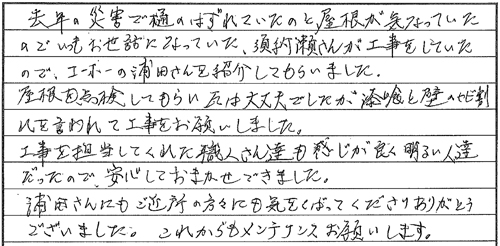 去年の災害で樋のはずれていたのと屋根が気になっていた
のでいつもお世話になっていた、須釜瀬さんが工事をしていた
ので、エーホーの浦田さんを紹介してもらいました。
屋根を点検してもらい瓦は大丈夫でしたが漆喰と壁のヒビ割
れを言われて工事をお願いしました。
工事を担当してくれた職人さん達も感じが良く明るい人達
だったので、安心しておまかせできました。
浦田さんにもご近所の方々にも気をくばってくださりありがとう
ございました。これからもメンテナンスお願いします。